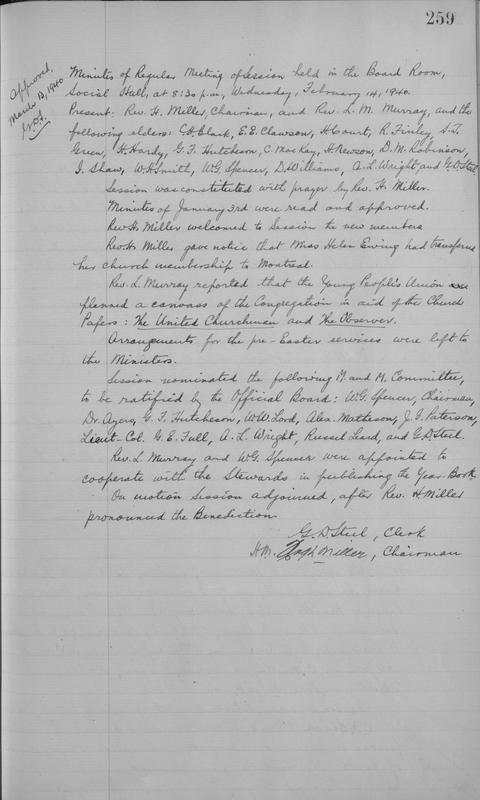 259
Approved,
March 13, 1940
G.D.S.
Minutes of Regular Meeting of Session held in the Board Room,
Social Hall, at 8:30 p.m., Wednesday, February 14, 1940.
Present: Rev. H. Miller, Chairman, and Rev. L. M. Murray, and the
following elders: G.H. Clark, E.E. Clawson, H. Court, R. Finley, S.T.
Green, H. Hardy, G.F. Hutcheson, C. MacKay, H. Newson, D.M. Robinson,
I. Shaw, W.H. Smith, W.G. Spencer, D. Williams, A.L. Wright and G.D. Steel
Session was constituted with prayer by Rev. H. Miller.
Minutes of January 3rd were read and approved.
Rev. H. Miller welcomed to Session the new members
Rev. H. Miller gave notice that Miss Helen Ewing had transferred
her church membership to Montreal.
Rev. L. Murray reported that the Young People's Union
planned a canvass of the Congregation in aid of the Church
Papers: The United Churchman and The Observer.
Arrangements for the pre-Easter services were left to
the Ministers.
Session nominated the following M. and M. Committee,
to be ratified by the Official Board: W.G. Spencer, Chairman,
Dr. Ayer, G.F. Hutcheson, W.W. Lord, Alex. Matheson, J.G. Paterson,
Lieut-Col. G.E. Full, A.L. Wright, Russel Leard, and G.D. Steel.
Rev. L. Murray and W.G. Spencer were appointed to
cooperate with the Stewards in publishing the Year Book.
On motion Session adjourned, after Rev. H. Miller
pronounced the Benediction
G.D. Steel, Clerk
H.M. Miller, Chairman